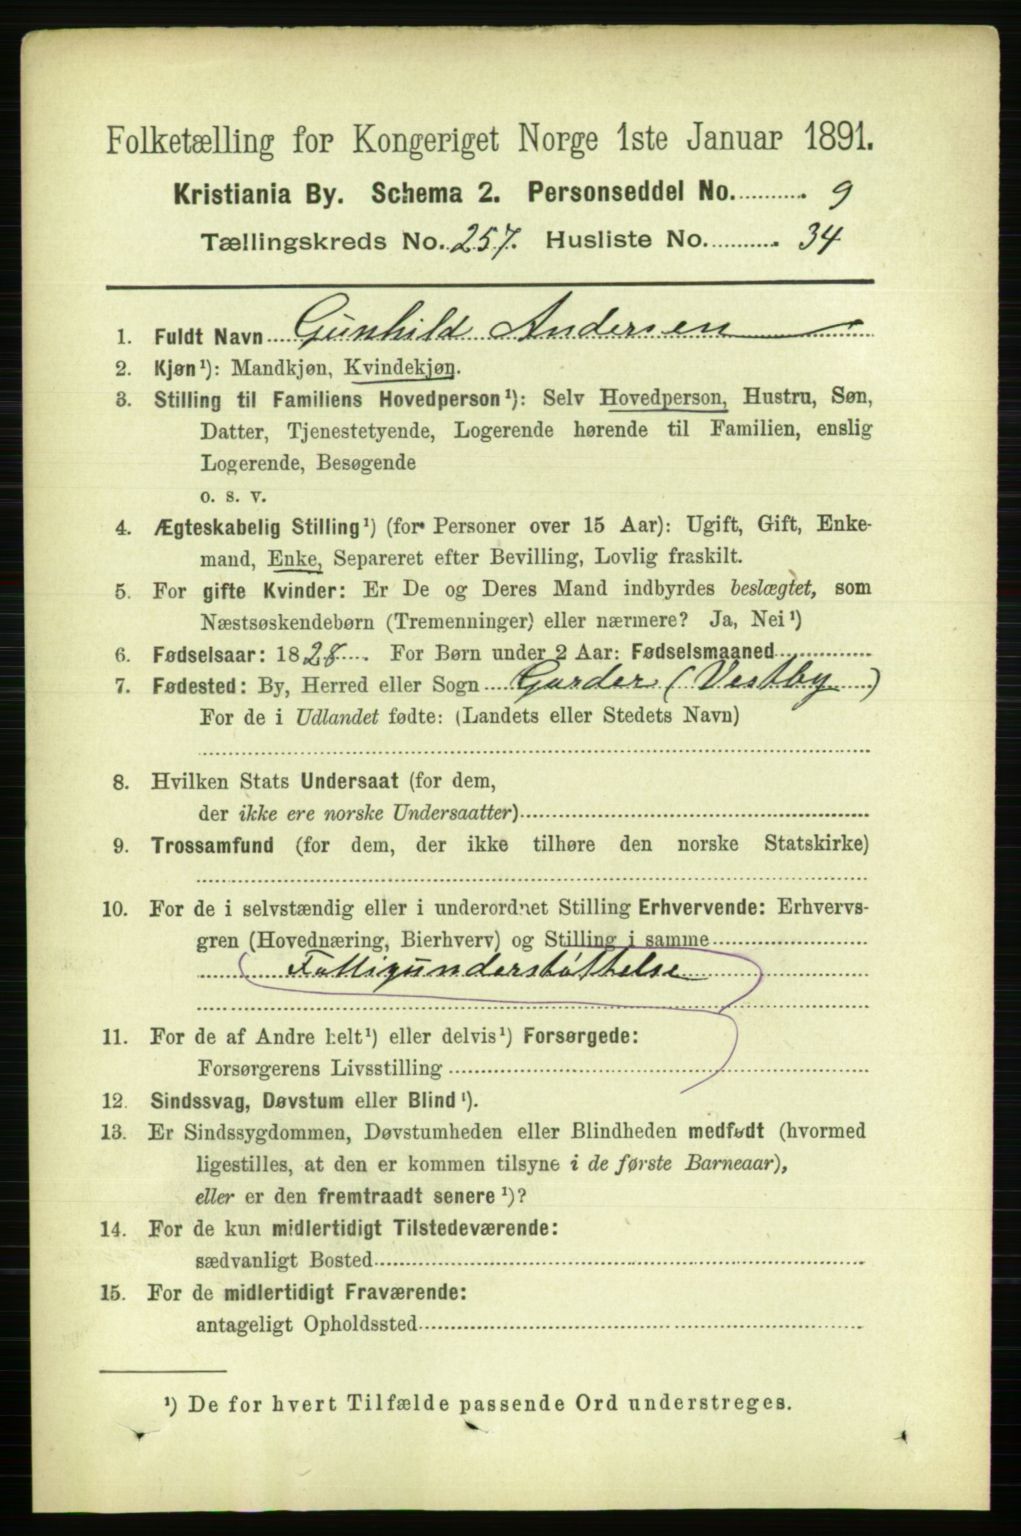 Folketælling for Kongeriget Norge 1ste Januar 1891.
Kristiania By. Schema 2. Personseddel No. 9
Tællingskreds No. 257. Husliste No. 34
1. Fuldt Navn Gunhild Andersen
2. Kjøn¹): Mandkjøn, Kvindekjøn.
3. Stilling til Familiens Hovedperson¹): Selv Hovedperson, Hustru, Søn,
Datter, Tjenestetyende, Logerende hørende til Familien, enslig
Logerende, Besøgende
o. s. v.
4. Ægteskabelig Stilling¹) (for Personer over 15 Aar): Ugift, Gift, Enke-
mand, Enke, Separeret efter Bevilling, Lovlig fraskilt.
5. For gifte Kvinder: Er De og Deres Mand indbyrdes beslægtet, som
Næstsøskendebørn (Tremenninger) eller nærmere? Ja, Nei¹)
6. Fødselsaar: 1828. For Børn under 2 Aar: Fødselsmaaned
7. Fødested: By, Herred eller Sogn Garder (Vestby)
For de i Udlandet fødte: (Landets eller Stedets Navn)
8. Hvilken Stats Undersaat (for dem,
der ikke ere norske Undersaatter)
9. Trossamfund (for dem, der ikke tilhøre den norske Statskirke)
10. For de i selvstændig eller i underordnet Stilling Erhvervende: Erhvervs-
gren (Hovednæring, Bierhverv) og Stilling i samme
Fattigunderstøttelse
11. For de af Andre helt¹) eller delvis¹) Forsørgede:
Forsørgerens Livsstilling
12. Sindssvag, Døvstum eller Blind¹).
13. Er Sindssygdommen, Døvstumheden eller Blindheden medfødt (hvormed
ligestilles, at den er kommen tilsyne i de første Barneaar),
eller er den fremtraadt senere¹)?
14. For de kun midlertidigt Tilstedeværende:
sædvanligt Bosted
15. For de midlertidigt Fraværende:
antageligt Opholdssted
¹) De for hvert Tilfælde passende Ord understreges.